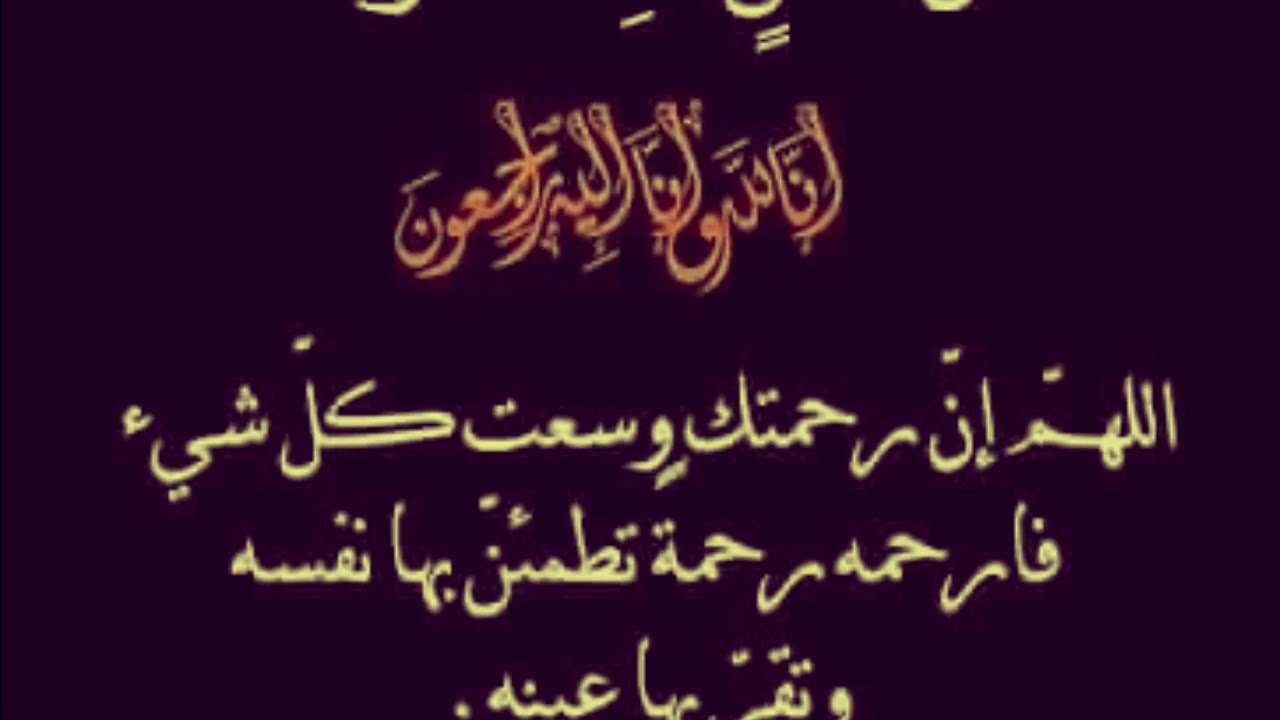 إنا لله وإنا إليه راجعون
اللهمّ إنّ رحمتك وسعت كلّ شيء
فارحمه رحمة تطمئنّ بها نفسه
وتقرّ بها عينه .